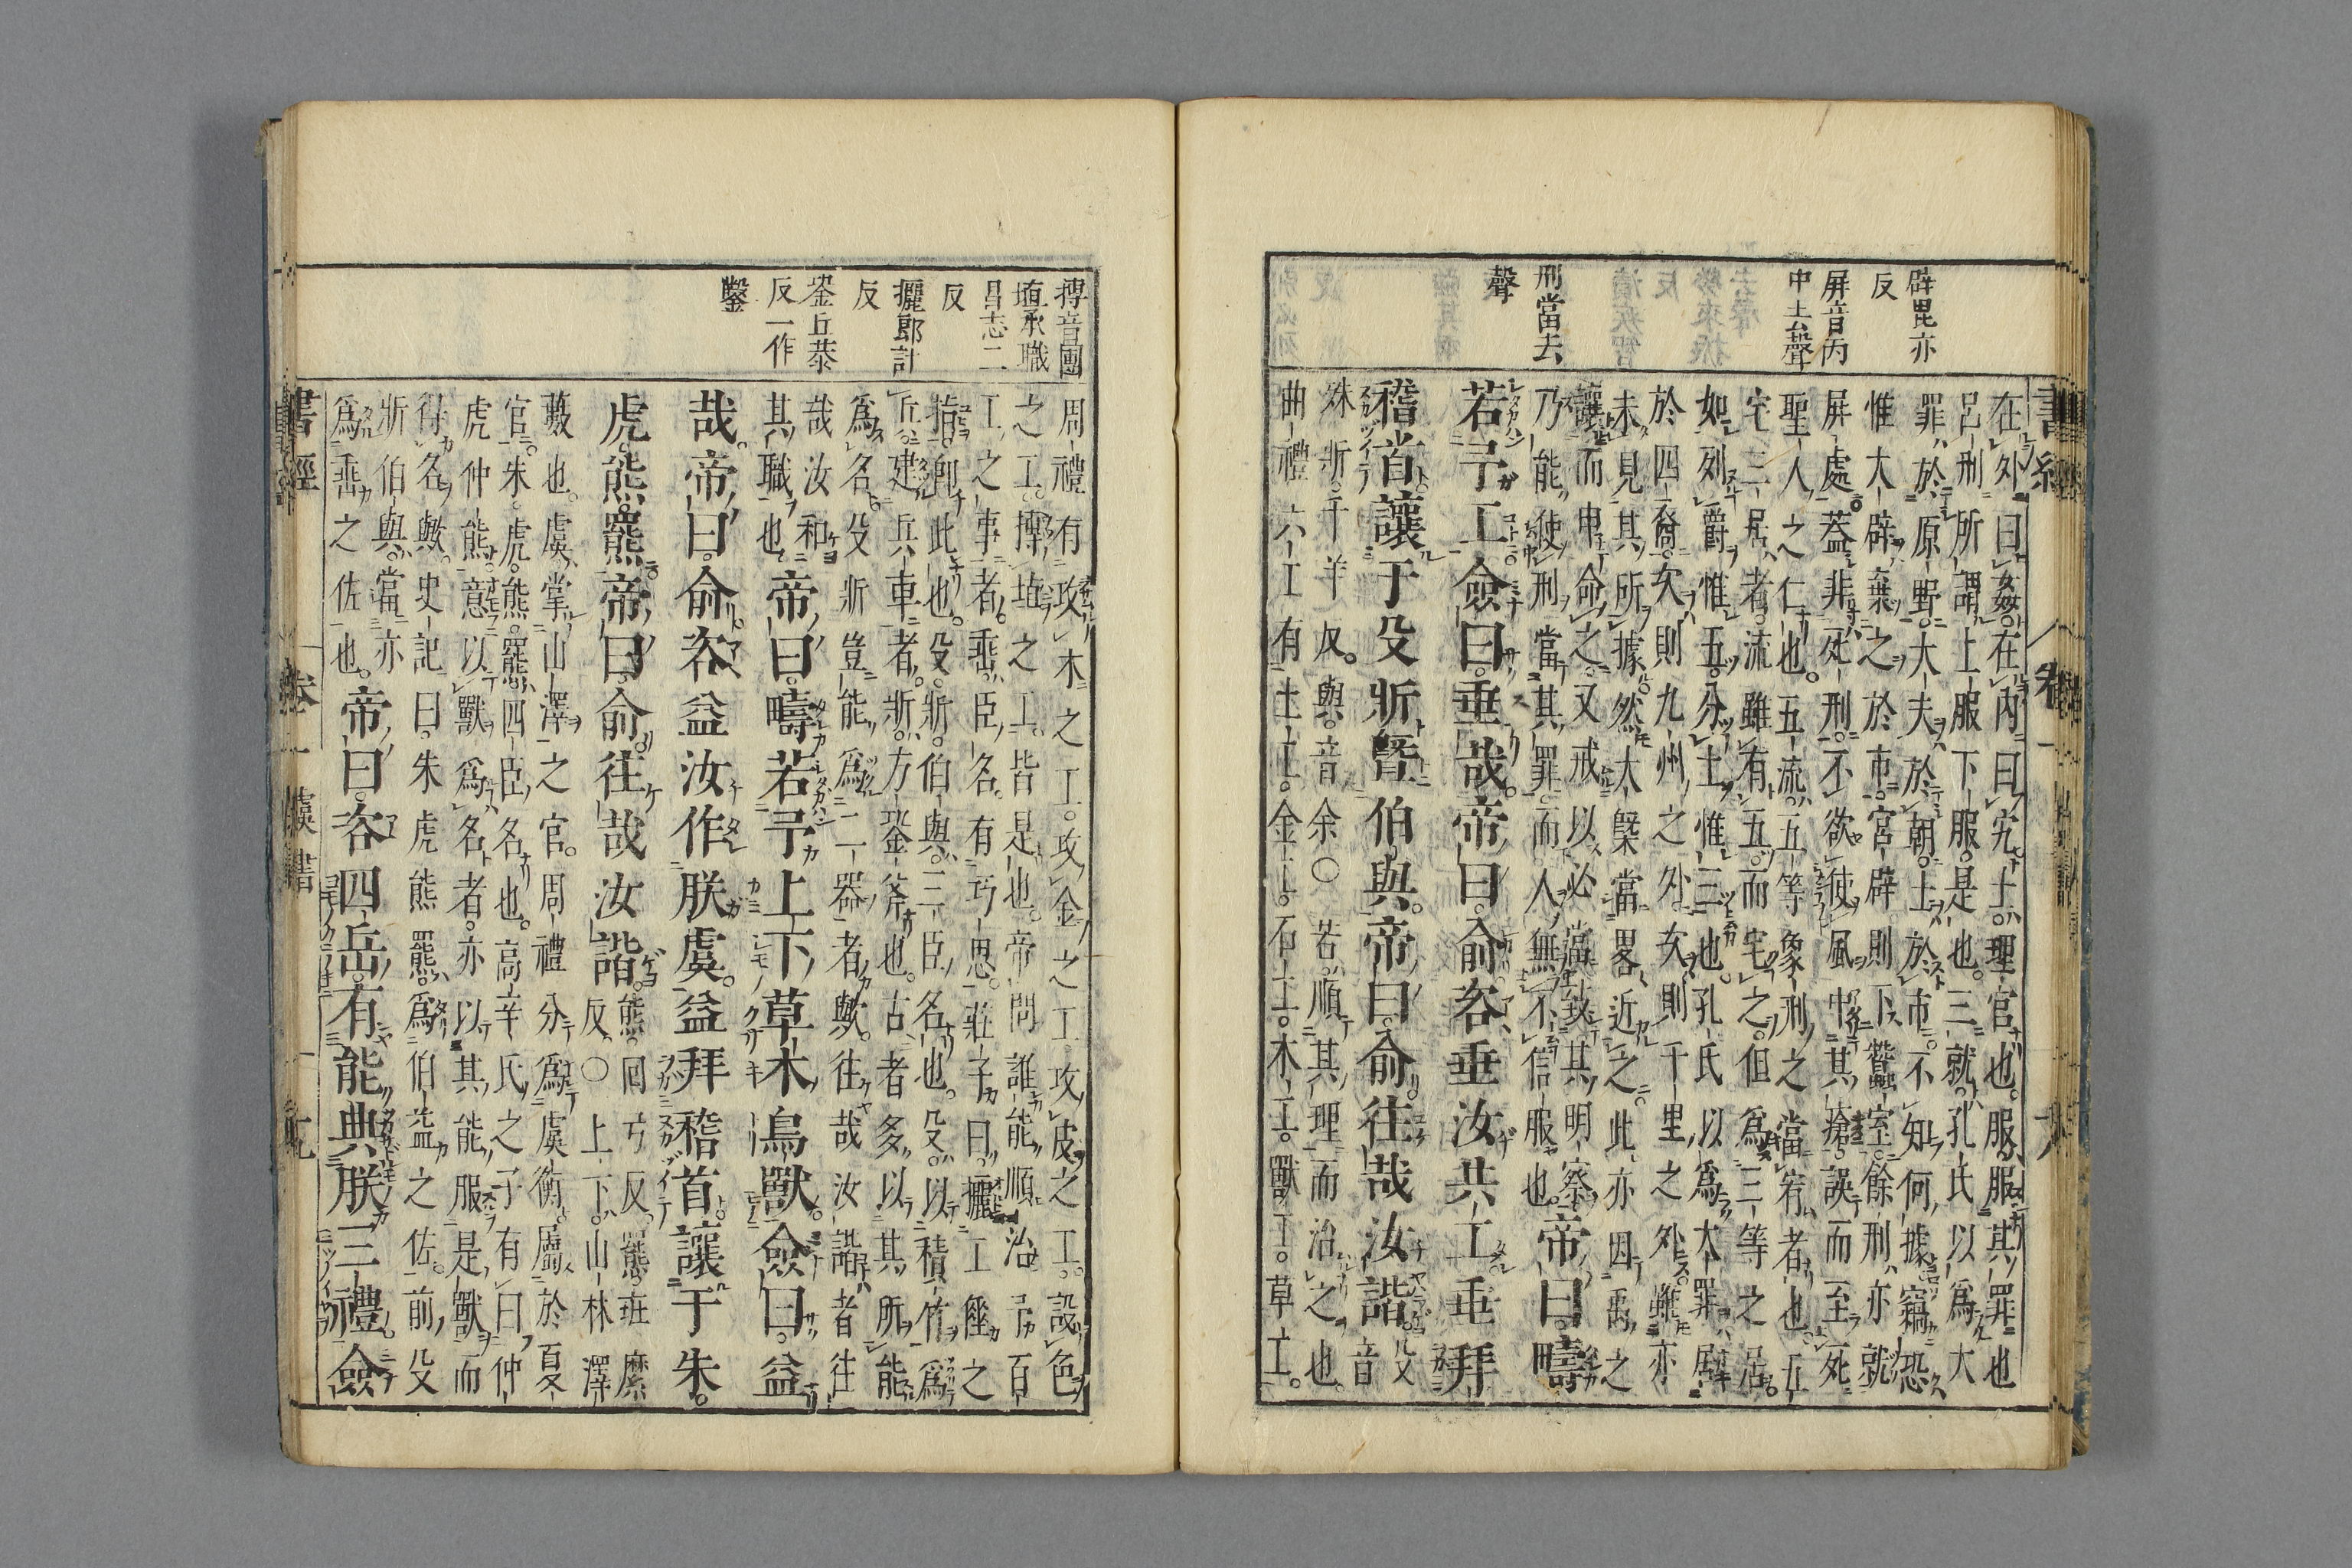 辟毘亦
反
屏音丙
中去聲
刑當去
聲
在外曰姦在內曰宄士理官也服服其罪也
呂刑所謂上服下服是也三就孔氏以爲大
罪於原野大夫於朝士於市不知何據竊恐
惟大辟棄之於市宮辟則下蠶室餘刑亦就
屏處蓋非死刑不欲使風中其瘡誤而至死
聖人之仁也五流五等象刑之當宥者也五
宅三居者流雖有五而宅之但爲三等之居
如列爵惟五分土惟三也孔氏以爲大罪居
於四裔次則九州之外次則千里之外雖亦
未見其所據然大槩當畧近之此亦因禹之
讓而申命之又戒以必當致其明察
乃能使刑當其罪而人無不信服也帝曰疇
若予工僉曰垂哉帝曰俞咨垂汝共工垂拜
稽首讓于殳斨曁伯與帝曰俞往哉汝諧殳音
殊斨千羊反與音余〇若順其理而治之也
曲禮六工有土工金工石工木工獸工草工
摶音團
埴承職
昌志二
反
攦郎計
反
銎丘恭
反一作
鑿
周禮有攻木之工攻金之工攻皮之工設色
之工摶埴之工皆是也帝問誰能順治予百
工之事者垂臣名有巧思莊子曰攦工倕之
指卽此也殳斨伯與三臣名也殳以積竹爲
兵建兵車者斨方銎斧也古者多以其所能
爲名殳斨豈能爲二器者歟往哉汝諧者往
哉汝和其職也帝曰疇若予上下草木鳥獸僉曰益
哉帝曰俞咨益汝作朕虞益拜稽首讓于朱
虎熊羆帝曰俞往哉汝諧熊回弓反羆班糜
反〇上下山林澤
藪也虞掌山澤之官周禮分爲虞衡屬於夏
官朱虎熊羆四臣名也高辛氏之子有曰仲
虎仲熊意以獸爲名者亦以其能服是獸而
得名歟史記曰朱虎熊羆爲伯益之佐前殳
斨伯與當亦
爲垂之佐也帝曰咨四岳有能典朕三禮僉
書經 卷一 虞書